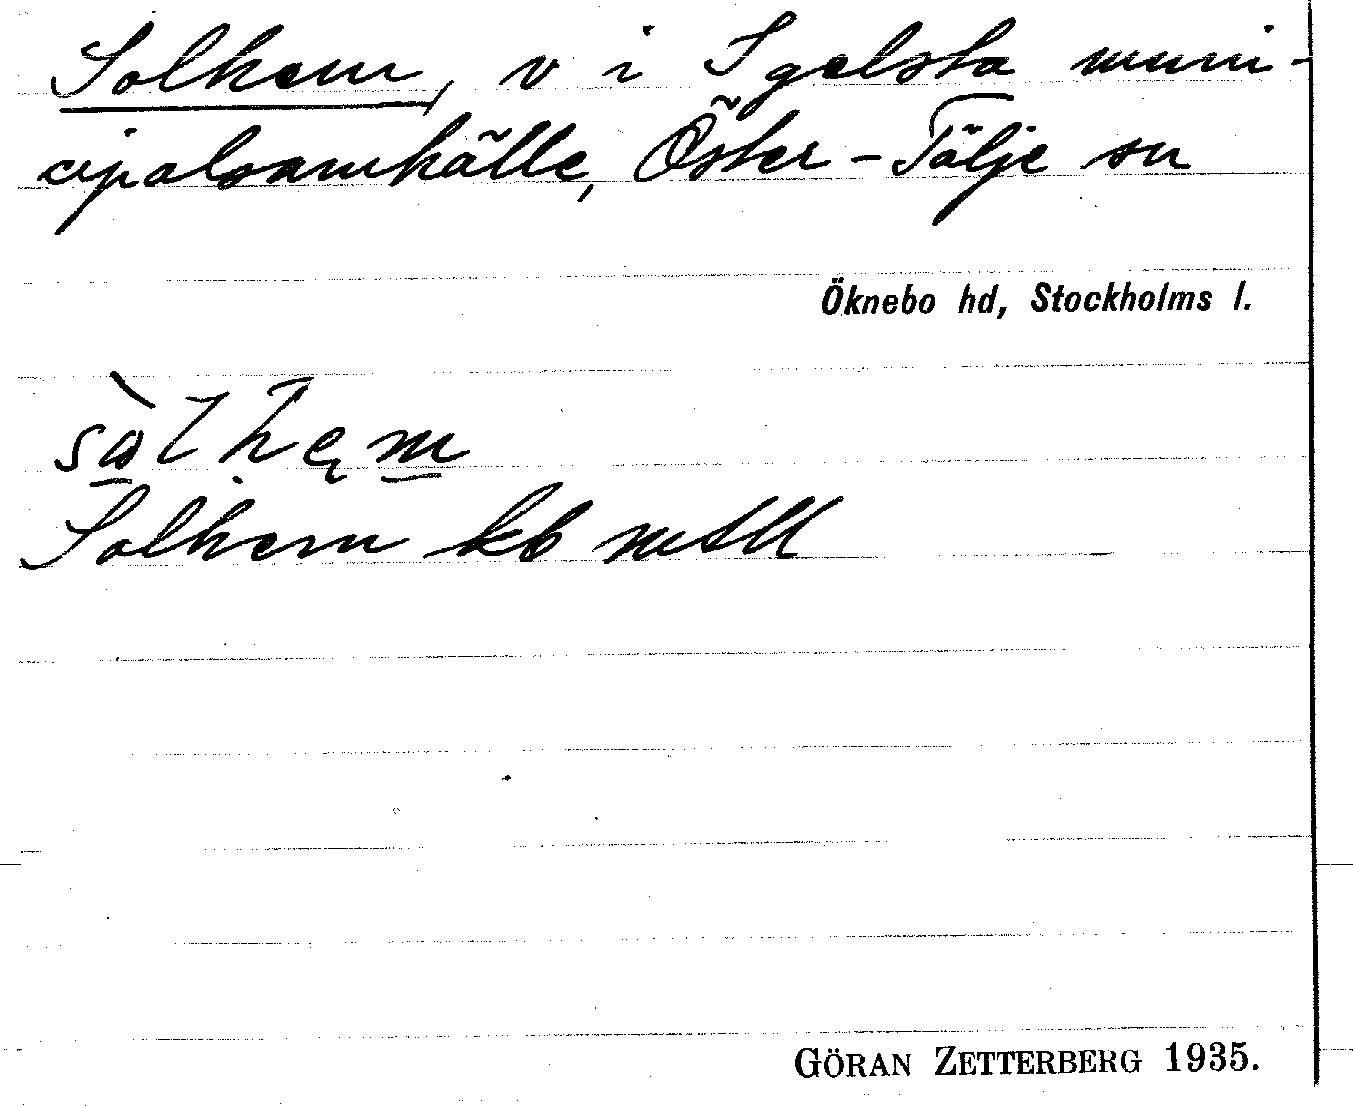 Solhem, v i Igelsta muni-
cipalsamhälle, Öster-Tälje sn
Öknebo hd, Stockholms l.
Solhem kb
GÖRAN ZETTERBERG 1935.